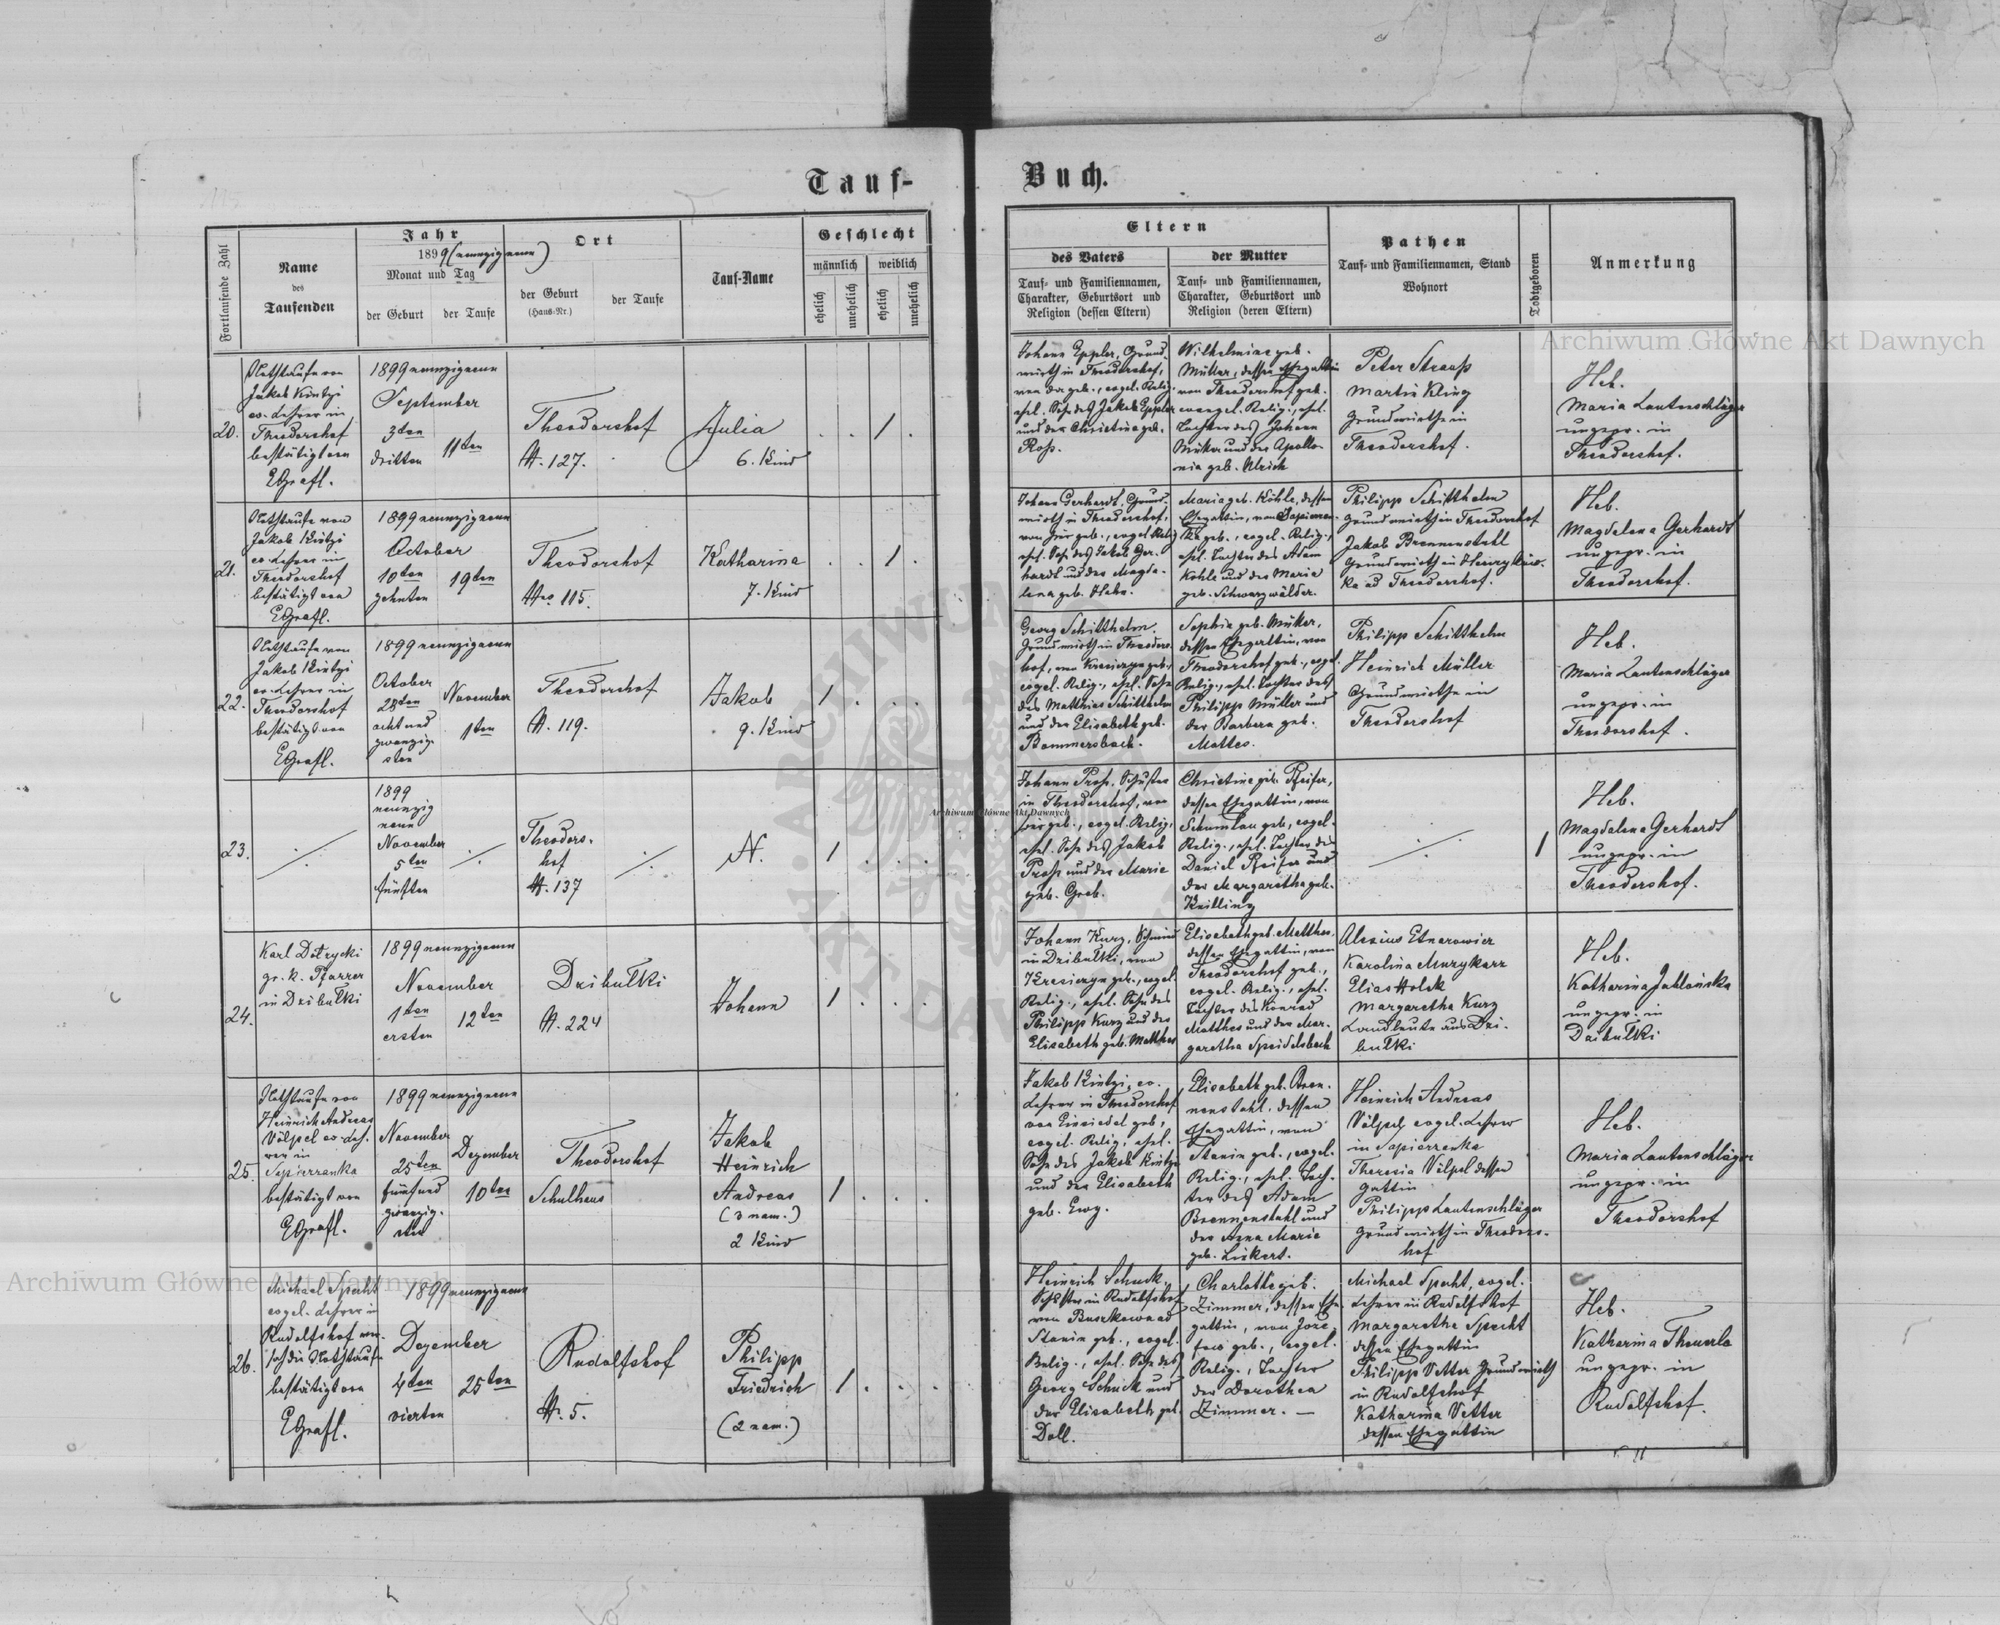 Tauf-
Buch.
Fortlaufende Zahl
Name
des
Taufenden
Jahr
1899 (neunzigneun)
Monat und Tag
der Geburt
der Taufe
Ort
der Geburt
(Haus-Nr.)
der Taufe
Tauf-Name
Geschlecht
männlich
weiblich
ehelich
unehelich
ehelich
unehelich
Eltern
des Vaters
Tauf- und Familiennamen,
Charakter, Geburtsort und
Religion (dessen Eltern)
der Mutter
Tauf- und Familiennamen,
Charakter, Geburtsort und
Religion (deren Eltern)
Pathen
Tauf- und Familiennamen, Stand
Wohnort
Todtgeboren
Anmerkung
20.
Nothtaufe von
Jakob Kintzi
ev. Lehrer in
Theodorshof
bestätigt von
1899 neunzigneun
September
3ten
dritten
11ten
Theodorshof
N. 127.
Julia
6. Kind
1
Johann Eppler, Grund-
wirth in Theodorshof,
von da geb., evgel. Relig.
ehel. Sohn des Jakob Eppler
und der Christine geb.
Ross.
Wilhelmine geb.
Müller, dessen Ehegattin
von Theodorshof geb.
evangel. Relig., ehel.
Tochter des Johann
Müller und der Apollo-
nia geb. Ulrich
Peter Strauss
Martin Kling
Grundwirthe in
Theodorshof.
Heb.
Maria Lautenschläger
ungepr. in
Theodorshof.
21.
Nothtaufe von
Jakob Kintzi
ev. Lehrer in
Theodorshof
bestätigt von
1899 neunzigneun
October
10ten
zehnten
19ten
Theodorshof
Nro 115.
Katharina
7. Kind
1
Johann Gerhardt, Grund-
wirth in Theodorshof,
von hier geb., evgel. Relig.
ehel. Sohn des Jakob Ger-
hardt und der Magda-
lena geb. Hahn.
Maria geb. Kohle, dessen
Ehegattin, von Sapieran-
ka geb., evgel. Relig.,
ehel. Tochter des Adam
Kohle und der Maria
geb. Schwarzwälder.
Philipp Schitthelm
Grundwirth in Theodorshof
Jakob Brennenstuhl
Grundwirth in Heinryków-
ka ad Theodorshof.
Heb.
Magdalena Gerhardt
ungepr. in
Theodorshof.
22.
Nothtaufe von
Jakob Kintzi
ev. Lehrer in
Theodorshof
bestätigt von
1899 neunzigneun
October
28ten
acht und
zwanzig-
sten
November
1ten
Theodorshof
N. 119.
Jakob
9. Kind
1
Georg Schitthelm,
Grundwirth in Theodors-
hof, von geb.,
evgel. Relig., ehel. Sohn
des Matthias Schitthelm
und der Elisabeth geb.
Bommersbach.
Sophia geb. Müller,
dessen Ehegattin, von
Theodorshof geb., evgel.
Relig., ehel. Tochter des
Philipp Müller und
der Barbara geb.
Mattes.
Philipp Schitthelm
Heinrich Müller
Grundwirthe in
Theodorshof
Heb.
Maria Lautenschläger
ungepr. in
Theodorshof.
23.
1899
neunzig
neun
November
5ten
fünften
Theodors-
hof
N. 137
N.
1
Johann Pross, Schuster
in Theodorshof, von
hier geb., evgel. Relig.,
ehel. Sohn des Jakob
Pross und der Marie
geb. Greb.
Christine geb. Pfeifer,
dessen Ehegattin, von
Schumlau geb., evgel.
Relig., ehel. Tochter des
Daniel Pfeifer und
der Margaretha geb.
Keilling
1
Heb.
Magdalena Gerhardt
ungepr. in
Theodorshof.
24.
Karl Dołzycki
gr. k. Pfarrer
in Dzibułki
1899 neunzigneun
November
1ten
ersten
12ten
Dzibułki
N. 224
Johann
1
Johann Kurz, Schmied
in Dzibułki, von
geb., evgel.
Relig., ehel. Sohn des
Philipp Kurz und der
Elisabeth geb. Matthes
Elisabeth geb. Matthes,
dessen Ehegattin, von
Theodorshof geb.,
evgel. Relig., ehel.
Tochter des Konrad
Matthes und der Mar-
garetha Speidelsbach
Alexius Etnarowicz
Karolina Muzykarz
Elias Holek
Margaretha Kurz
Landleute aus Dzi-
bułki
Heb.
Katharina Jabłońska
ungepr. in
Dzibułki
25.
Nothtaufe von
Heinrich Andreas
Völpel ev. Leh-
rer in
Sapieranka
bestätigt von
1899 neunzigneun
November
25ten
fünf und
zwanzig-
sten
Dezember
10ten
Theodorshof
Schulhaus
Jakob
Heinrich
Andreas
(3 nam.)
2 Kind
1
Jakob Kintzi, ev.
Lehrer in Theodorshof
von Einsiedel geb.,
evgel. Relig., ehel.
Sohn des Jakob Kintzi
und der Elisabeth
geb. Ewy.
Elisabeth geb. Bren-
nenstuhl, dessen
Ehegattin, von
Stanin geb., evgel.
Relig., ehel. Toch-
ter des Adam
Brennenstuhl und
der Anna Marie
geb. Linkert.
Heinrich Andreas
Völpel, evgel. Lehrer
in Sapieranka
Theresia Völpel dessen
gattin
Philipp Lautenschläger
Grundwirth in Theodors-
hof
Heb.
Maria Lautenschläger
ungepr. in
Theodorshof
26.
Michael Specht
evgel. Lehrer in
Rudolfshof
die Nothtaufe
bestätigt von
1899 neunzigneun
Dezember
4ten
vierten
25ten
Rudolfshof
N. 5.
Philipp
Friedrich
(2 nam.)
1
Heinrich Schuck,
in Rudolfshof
von
Stanin geb., evgel.
Relig., ehel. Sohn des
Georg Schuck und
der Elisabeth geb.
Doll.
Charlotte geb.
Zimmer, dessen Ehe-
gattin, von Józe-
fow geb., evgel.
Relig., Tochter
der Dorothea
Zimmer. —
Michael Specht, evgel.
Lehrer in Rudolfshof
Margaretha Specht
dessen Ehegattin
Philipp Vetter Grundwirth
in Rudolfshof
Katharina Vetter
dessen Ehegattin
Heb.
Katharina Theuerle
ungepr. in
Rudolfshof.
Archiwum Główne Akt Dawnych
Archiwum Główne Akt Dawnych
Archiwum Główne Akt Dawnych